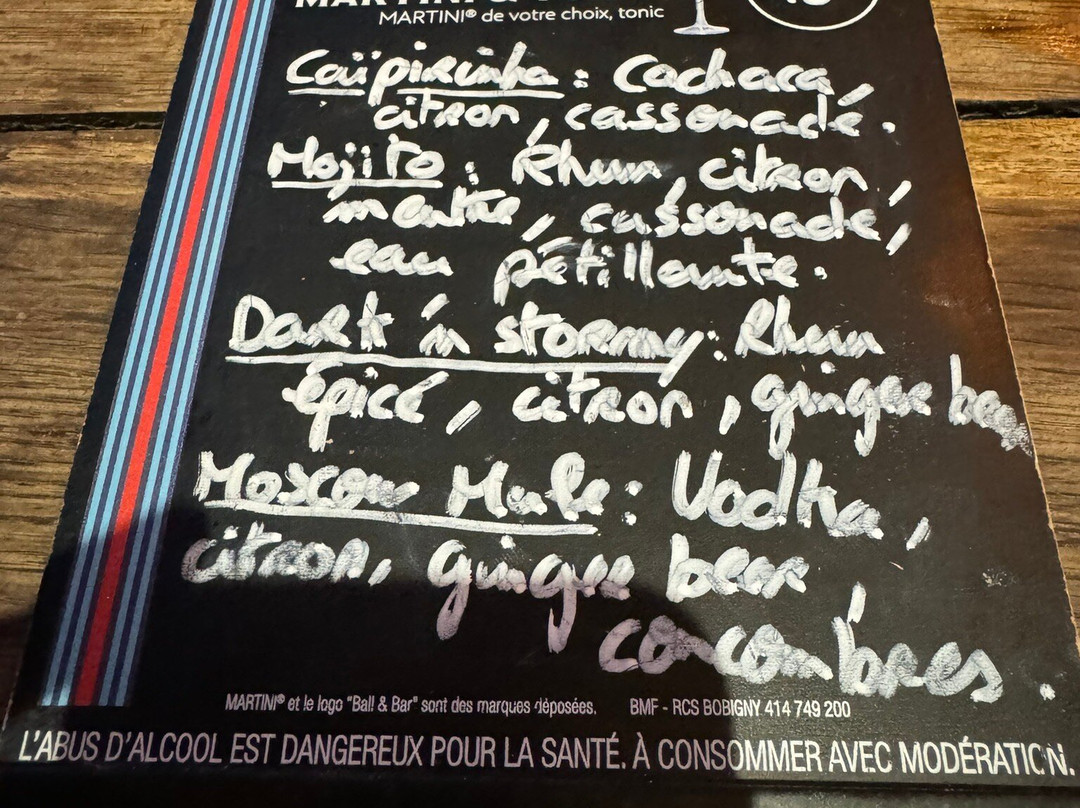 MARTINI® de votre choix, tonic
Caïpirinha : Cachaca,
citron, cassonade.
Mojito : Rhum, citron,
menthe, cassonade,
eau pétillante.
Dark in stormy : Rhum
épicé, citron, ginger beer
Moscow Mule : Vodka,
citron, ginger beer,
concombres.
MARTINI® et le logo "Ball & Bar" sont des marques déposées. BMF - RCS BOBIGNY 414 749 200
L'ABUS D'ALCOOL EST DANGEREUX POUR LA SANTÉ. À CONSOMMER AVEC MODÉRATION.